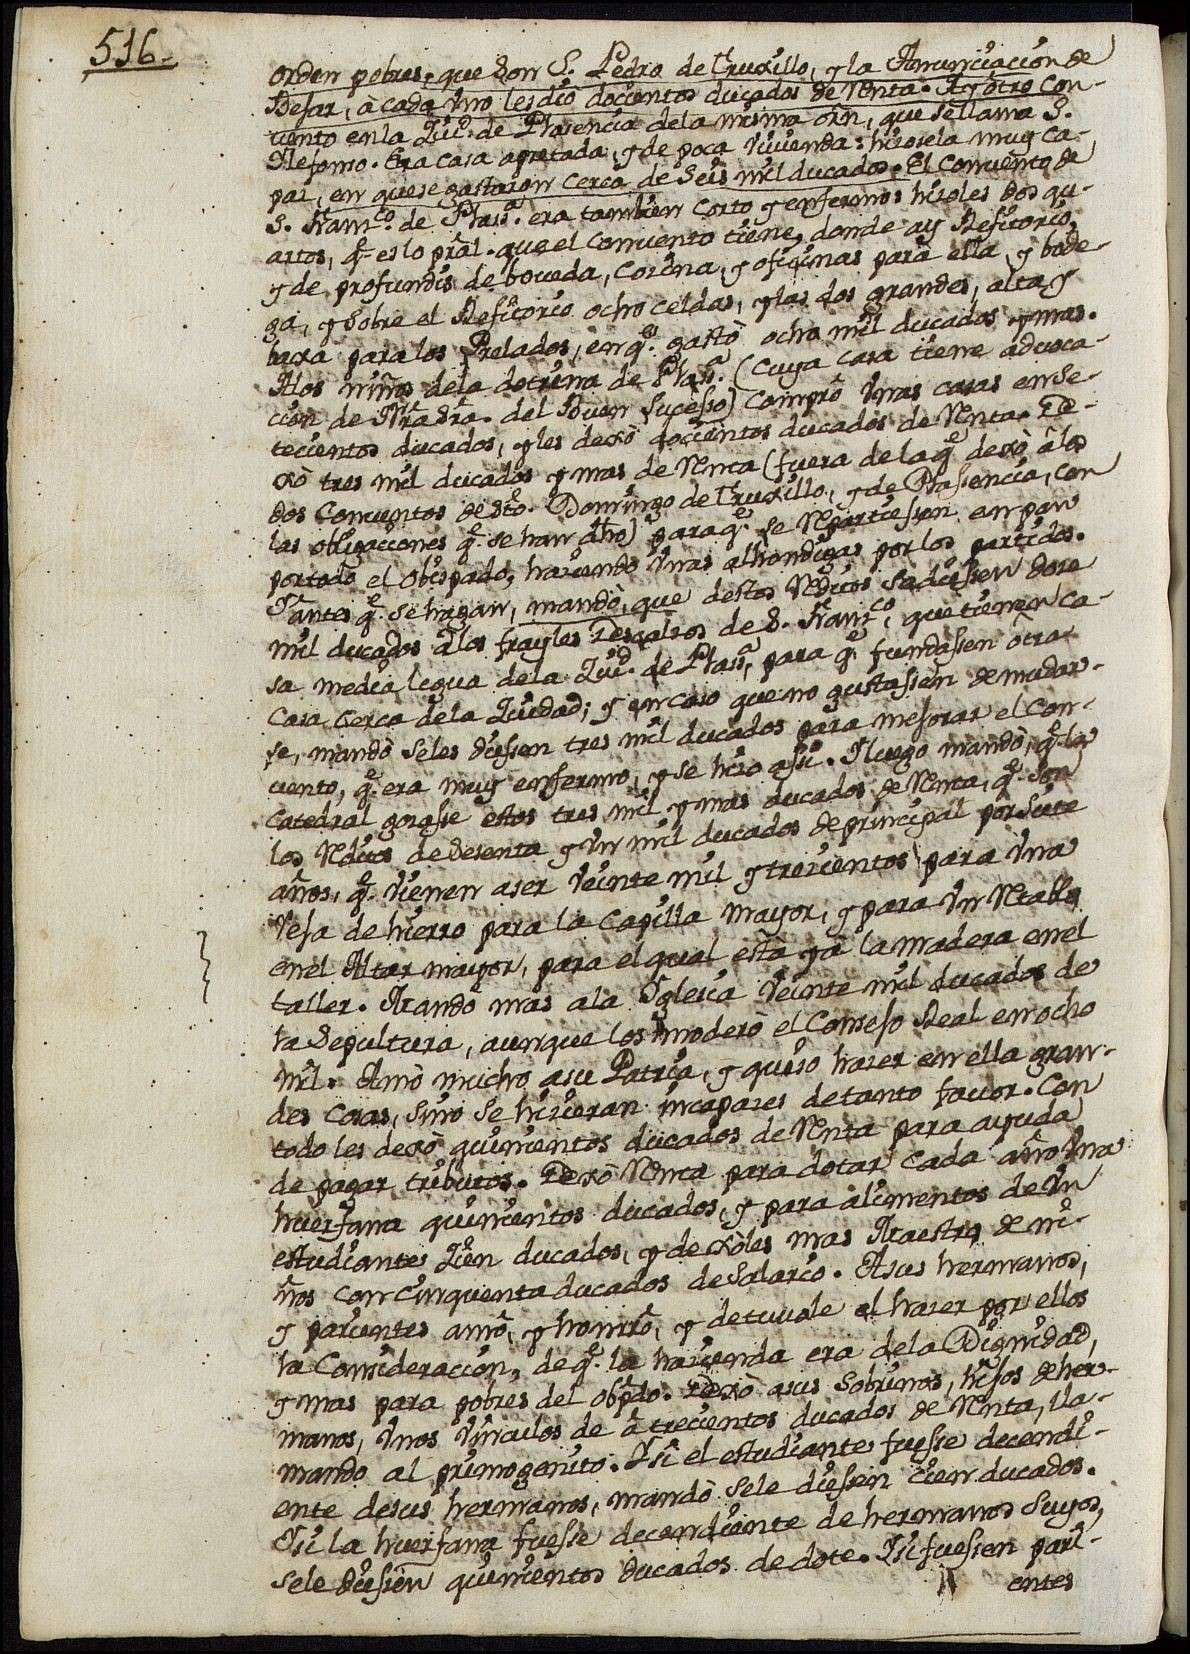 516.
orden pobres, que son S. Pedro de Truxillo, y la Anunciacion de
Bejar, à cada vno les diò docientos ducados de renta. Ay otro con-
uento en la Ziud. de Plasencia de la misma orñ, que se llama S.
Ylefonso. Era casa apretada, y de poca viuienda: hizosela muy ca-
paz, en que se gastaron cerca de seis mil ducados. El Conuento de
S. Franco. de Plasa. era tambien corto y enfermo: hizoles dos qu-
artos, q̃ es lo pral. que el Conuento tiene, donde ay Refitorio,
y de profundis de boueda, Cozina, y oficinas para ella, y bode-
ga, y sobre el Refitorio ocho celdas, y las dos grandes, alta, y
baxa para los Prelados, en q̃. gastò ocho mil ducados y mas.
A los niños de la dotrina de Plasa. (Cuya casa tiene aduoca-
cion de Nrã Srã. del Buen sucesso) comprò vnas casas en se-
tecientos ducados, y les dexò docientos ducados de renta. De-
xò tres mil ducados y mas de renta (fuera de la q̃ dexò à los
dos Conuentos de Sto. Domingo de Truxillo, y de Plasencia, con
las obligaciones q̃. se han dho) para q̃. se repartiessen en pan
por todo el Obispado, haziendo vnas alhondigas por los partidos.
Y antes q̃. se hagan, mandò, que destos reditos se diessen doze
mil ducados à los frayles Descalzos de S. Franco, que tienen ca-
sa media legua de la Ziud. de Plasa, para q̃. fundassen otra
Casa cerca de la Ziudad; y en caso que no gustassen de mudar-
se, mandò se les diessen tres mil ducados para mejorar el Con-
uento, q̃. era muy enfermo, y se hizo assi. Y luego mandò, q̃. la
Catedral gozasse estos tres mil y mas ducados de renta, q̃. son
los reditos de sesenta y vn mil ducados de principal por siete
años, q̃. vienen a ser veinte mil y trezientos para vna
reja de hierro para la Capilla mayor, y para vn retablo
en el Altar mayor, para el qual està ya la madera en el
taller. Mandò mas a la Yglesia veinte mil ducados de
la sepultura, aunque los moderò el Consejo Real en ocho
mil. Amò mucho a su Patria, y quiso hazer en ella gran-
des cosas, sino se hizieran incapazes de tanto fauor. Con
todo les dexò quinientos ducados de renta para ayuda
de pagar tributos. Dexò renta para dotar cada año vna
huerfana quinientos ducados, y para alimentos de vn
estudiante Zien ducados, y dexòles mas Maestro de ni-
ños con cinquenta ducados de salario. A sus hermanos,
y parientes amò, y honrrò, y detuuole el hazer por ellos
la Consideracion, de q̃. la hazienda era de la Dignidad,
y mas para pobres del obpdo. Dexò a sus sobrinos, hijos de her-
manos, vnos vinculos de à trecientos ducados de renta, lla-
mando al primogenito. Y si el estudiante fuesse decendi-
ente de sus hermanos, mandò se le diessen cien ducados.
Y si la huerfana fuesse decendiente de hermanos suyos,
se le diessen quinientos ducados de dote. Y si fuessen pari-
entes